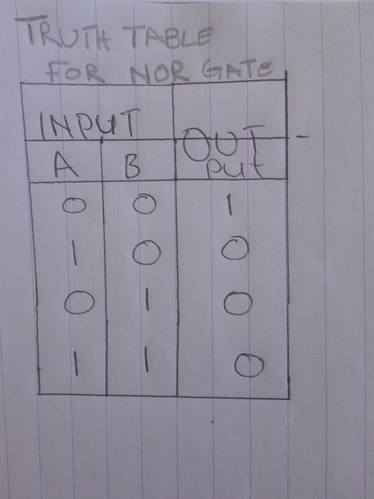 TRUTH TABLE
FOR NOR GATE
INPUT
OUT
A B put
0 0 1
1 0 0
0 1 0
1 1 0